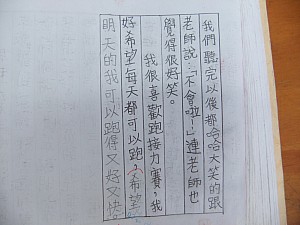 我們聽完以後都哈哈大笑的跟
老師說:「不會啦!」連老師也
覺得很好笑。
我很喜歡跑接力賽,我
好希望每天都可以跑,希望
明天的我可以跑得又好又快。